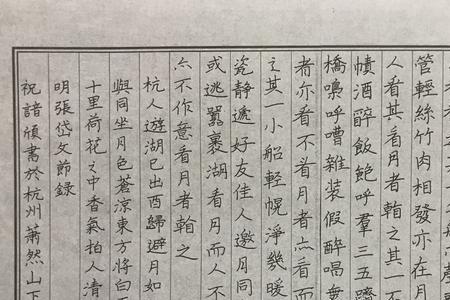 管輕絲竹肉相發亦在月
人看其看月者之其一不
幘酒醉飯飽呼羣三五躋
橋嘄呼嘈雜裝假醉唱無
者亦看不看月者亦看而
之其一小船輕幌淨幾暖
瓷靜遞好友佳人邀月同
或逃囂裹湖看月而人不
亦不作意看月者之
杭人遊湖已出酉歸避月如
與同坐月色蒼涼東方將白
十里荷花之中香氣拍人清
明張岱文節錄
祝諸頎書於杭州蕭然山下